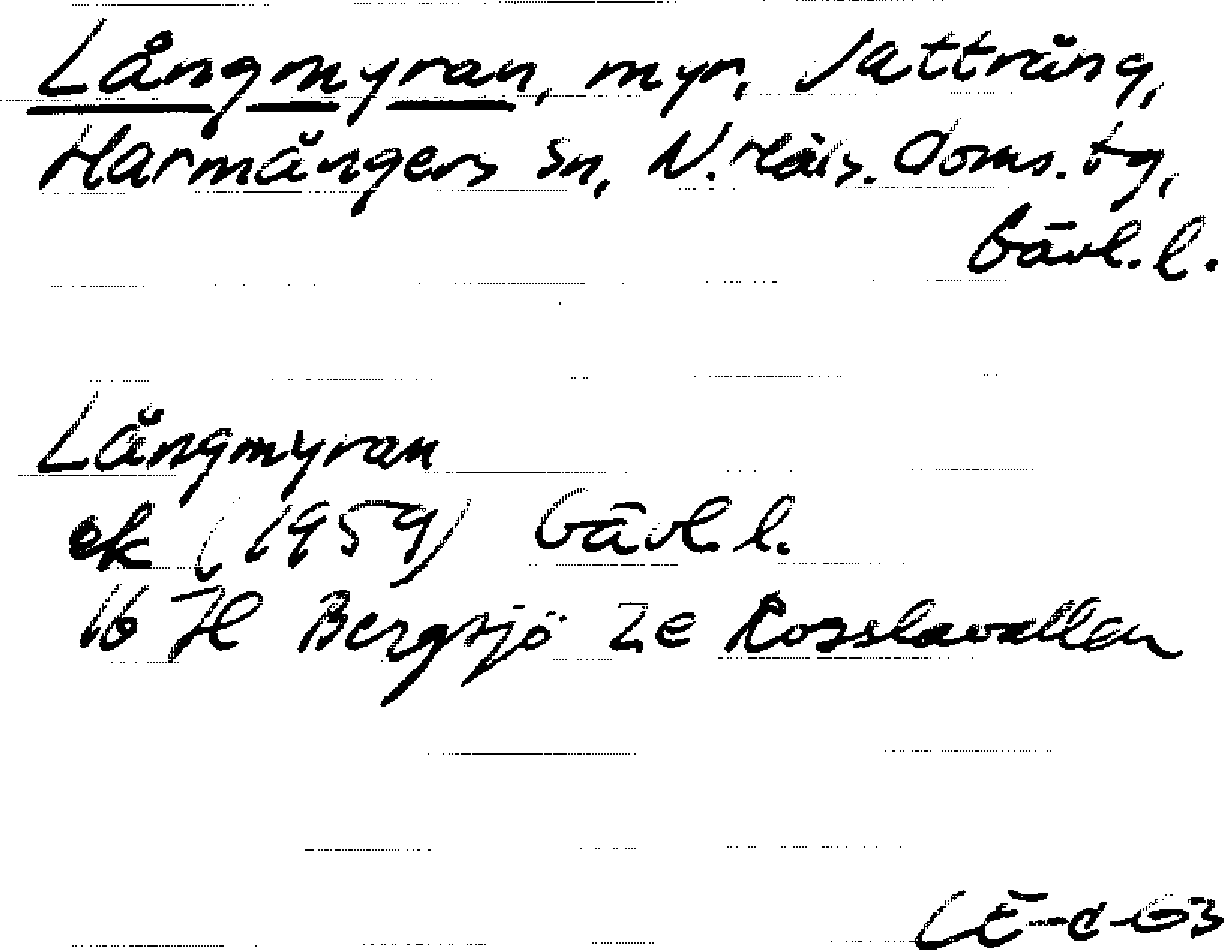 Långmyran, myr, Vattrång,
Harmångers sn, N. Häls. doms. tg,
Gävl. l.
Långmyran
ek (1959) Gävl. l.
16 H Bergsjö 2e Rosslavallen